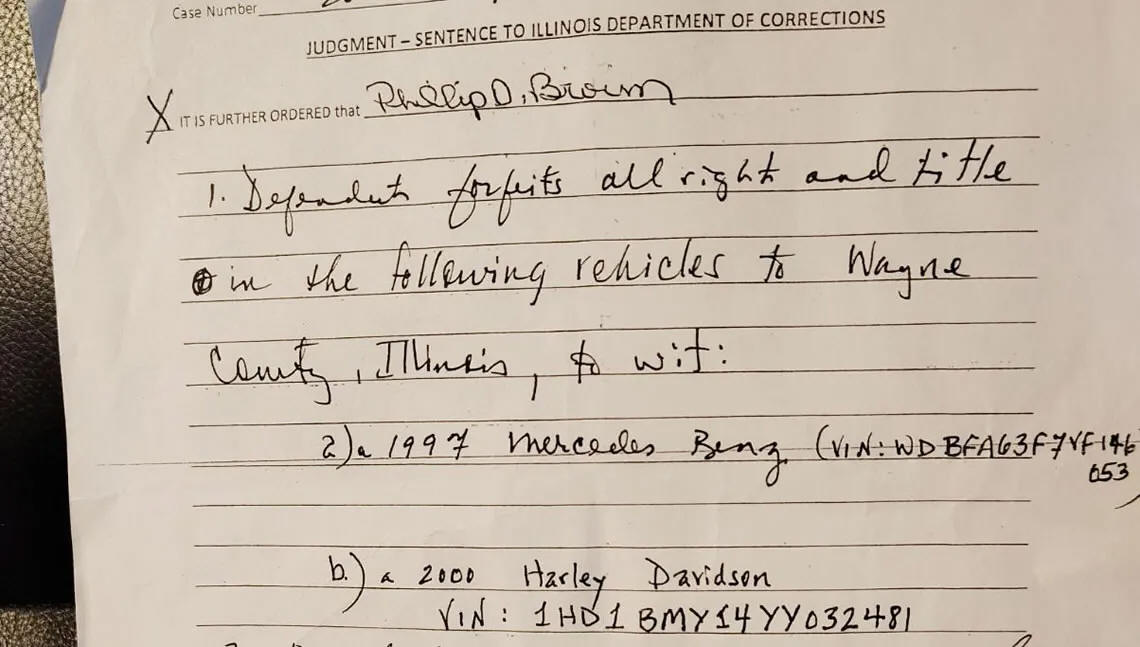 Case Number
JUDGMENT – SENTENCE TO ILLINOIS DEPARTMENT OF CORRECTIONS
X IT IS FURTHER ORDERED that Phillip D. Brown
1. Defendant forfeits all right and title
in the following vehicles to Wayne
County, Illinois, to wit:
a) a 1997 Mercedes Benz (VIN: WDBFA63F7VF146
053
b.) a 2000 Harley Davidson
VIN: 1HD1BMY14YY032481